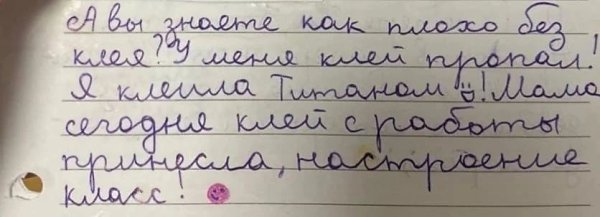 А вы знаете как плохо без
клея? У меня клей пропал!
Я клеила Титаном! Мама
сегодня клей с работы
принесла, настроение
класс!